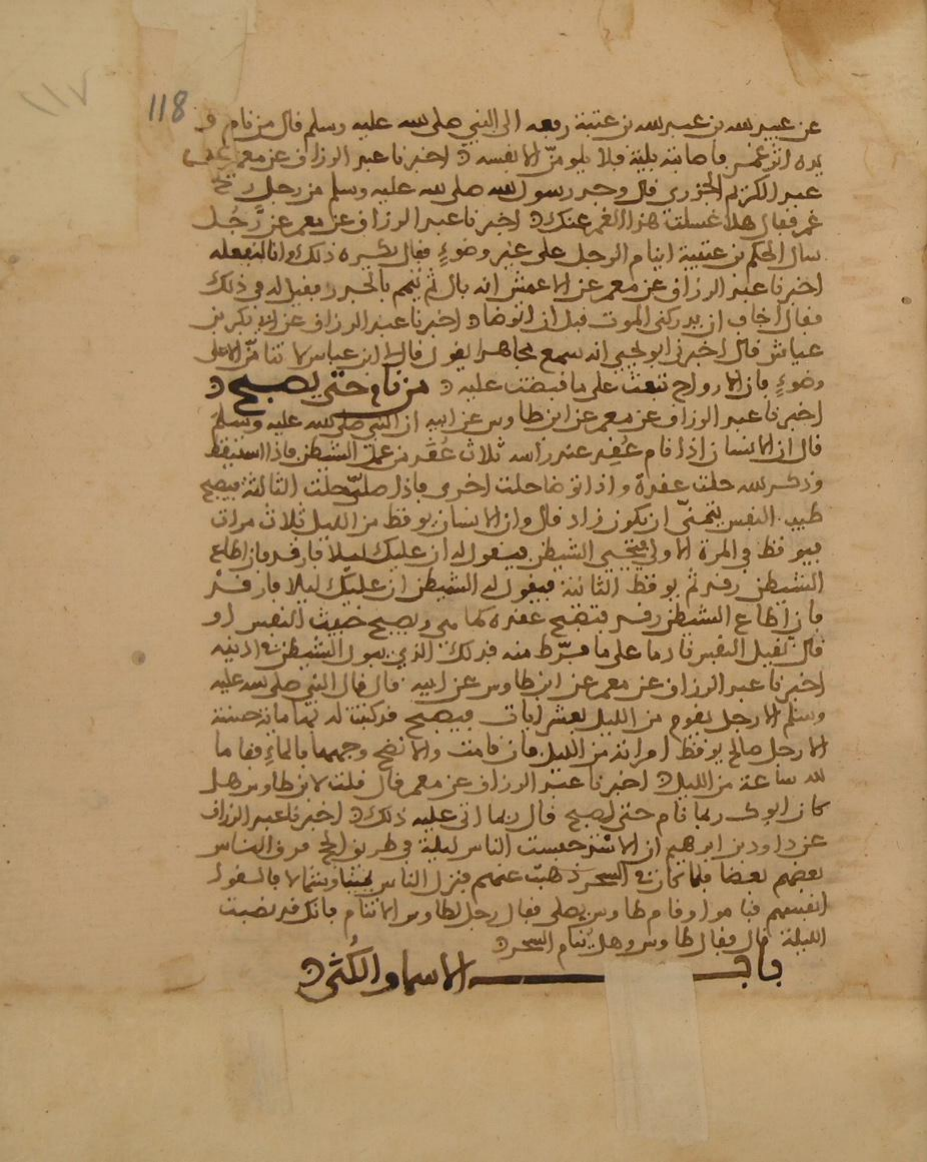 118
عن عبيد الله بن عبد الله بن عتبة رفعه الى النبي صلى الله عليه وسلم قال من نام و
يده اثر غمر فاصابته بلية فلا يلومن الا نفسه اخبرنا عبد الرزاق عن معمر عن
عبد الكريم الجزري قال وجد رسول الله صلى الله عليه وسلم من رجل ريح
غمر فقال هلا غسلت هذا الغمر عنك اخبرنا عبد الرزاق عن معمر عن رَّجُل
سال الحكم بن عتيبة اينام الرجل على غير وضوءٍ فقال يكره ذلك وانا لنفعله
اخبرنا عبد الرزاق عن معمر عن الاعمش انه بال ثم تيمم بالجدر فقيل له في ذلك
فقال اخاف ان يدركني الموت قبل ان اتوضا اخبرنا عبد الرزاق عن ابي بكر بن
عياش قال اخبرني ابو يحيى انه سمع مجاهدا يقول قال لي ابن عباس لا تنامن الا على
وضوءٍ فان الارواح تبعث على ما قبضت عليه من نام حتى يصبح
اخبرنا عبد الرزاق عن معمر عن ابن طاوس عن ابيه ان النبي صلى الله عليه وسلم
قال ان الانسان اذا نام عُقِد عند راسه ثلاث عُقَد من عمل الشيطن فاذا استيقظ
فذكر الله حلت عقدة واذا توضا حلت اخرى فاذا صلى حلت الثالثة فيصبح
طيب النفس يتمنى ان يكون زاد قال وان الانسان يوقظ من الليل ثلاث مرات
فيوقظ في المرة الاولى فيجيي الشيطن فيقول له ان عليك ليلا فارقد فان اطاع
الشيطن رقد ثم يوقظ الثانية فيقول له الشيطن ان عليك ليلا فارقد
فان اطاع الشيطن رقد فتصبح عقده كما هي ويصبح خبيث النفس او
قال ثقيل النفس نادما على ما فرّط منه فذلك الذي يبول الشيطن في اذنيه
اخبرنا عبد الرزاق عن معمر عن ابن طاوس عن ابيه قال قال النبي صلى الله عليه
وسلم الا رجل يقوم من الليل بعشر ايات فيصبح قد كتبت له بها مائة حسنة
الا رجل صالح يوقظ امراته من الليل فان قامت والا نضح وجهها بالماءِ فقاما
لله ساعة من الليل اخبرنا عبد الرزاق عن معمر قال قلت لابن طاوس هل
كان ابوك ربما نام حتى يصبح قال ربما اتى عليه ذلك اخبرنا عبد الرزاق
عن داود بن ابرهيم ان الاسَد حبست الناس ليلة في طريق الحج فدق الناس
بعضهم بعضا فلما كان في السحر ذهبت عنهم فنزل الناس يمينا وشمالا فالقوا
انفسهم فناموا وقام طاوس يصلي فقال رجل لطاوس الا تنام فانك قد نصبت
الليلة قال فقال طاوس وهل ينام السحر
باب الاسما والكُنى